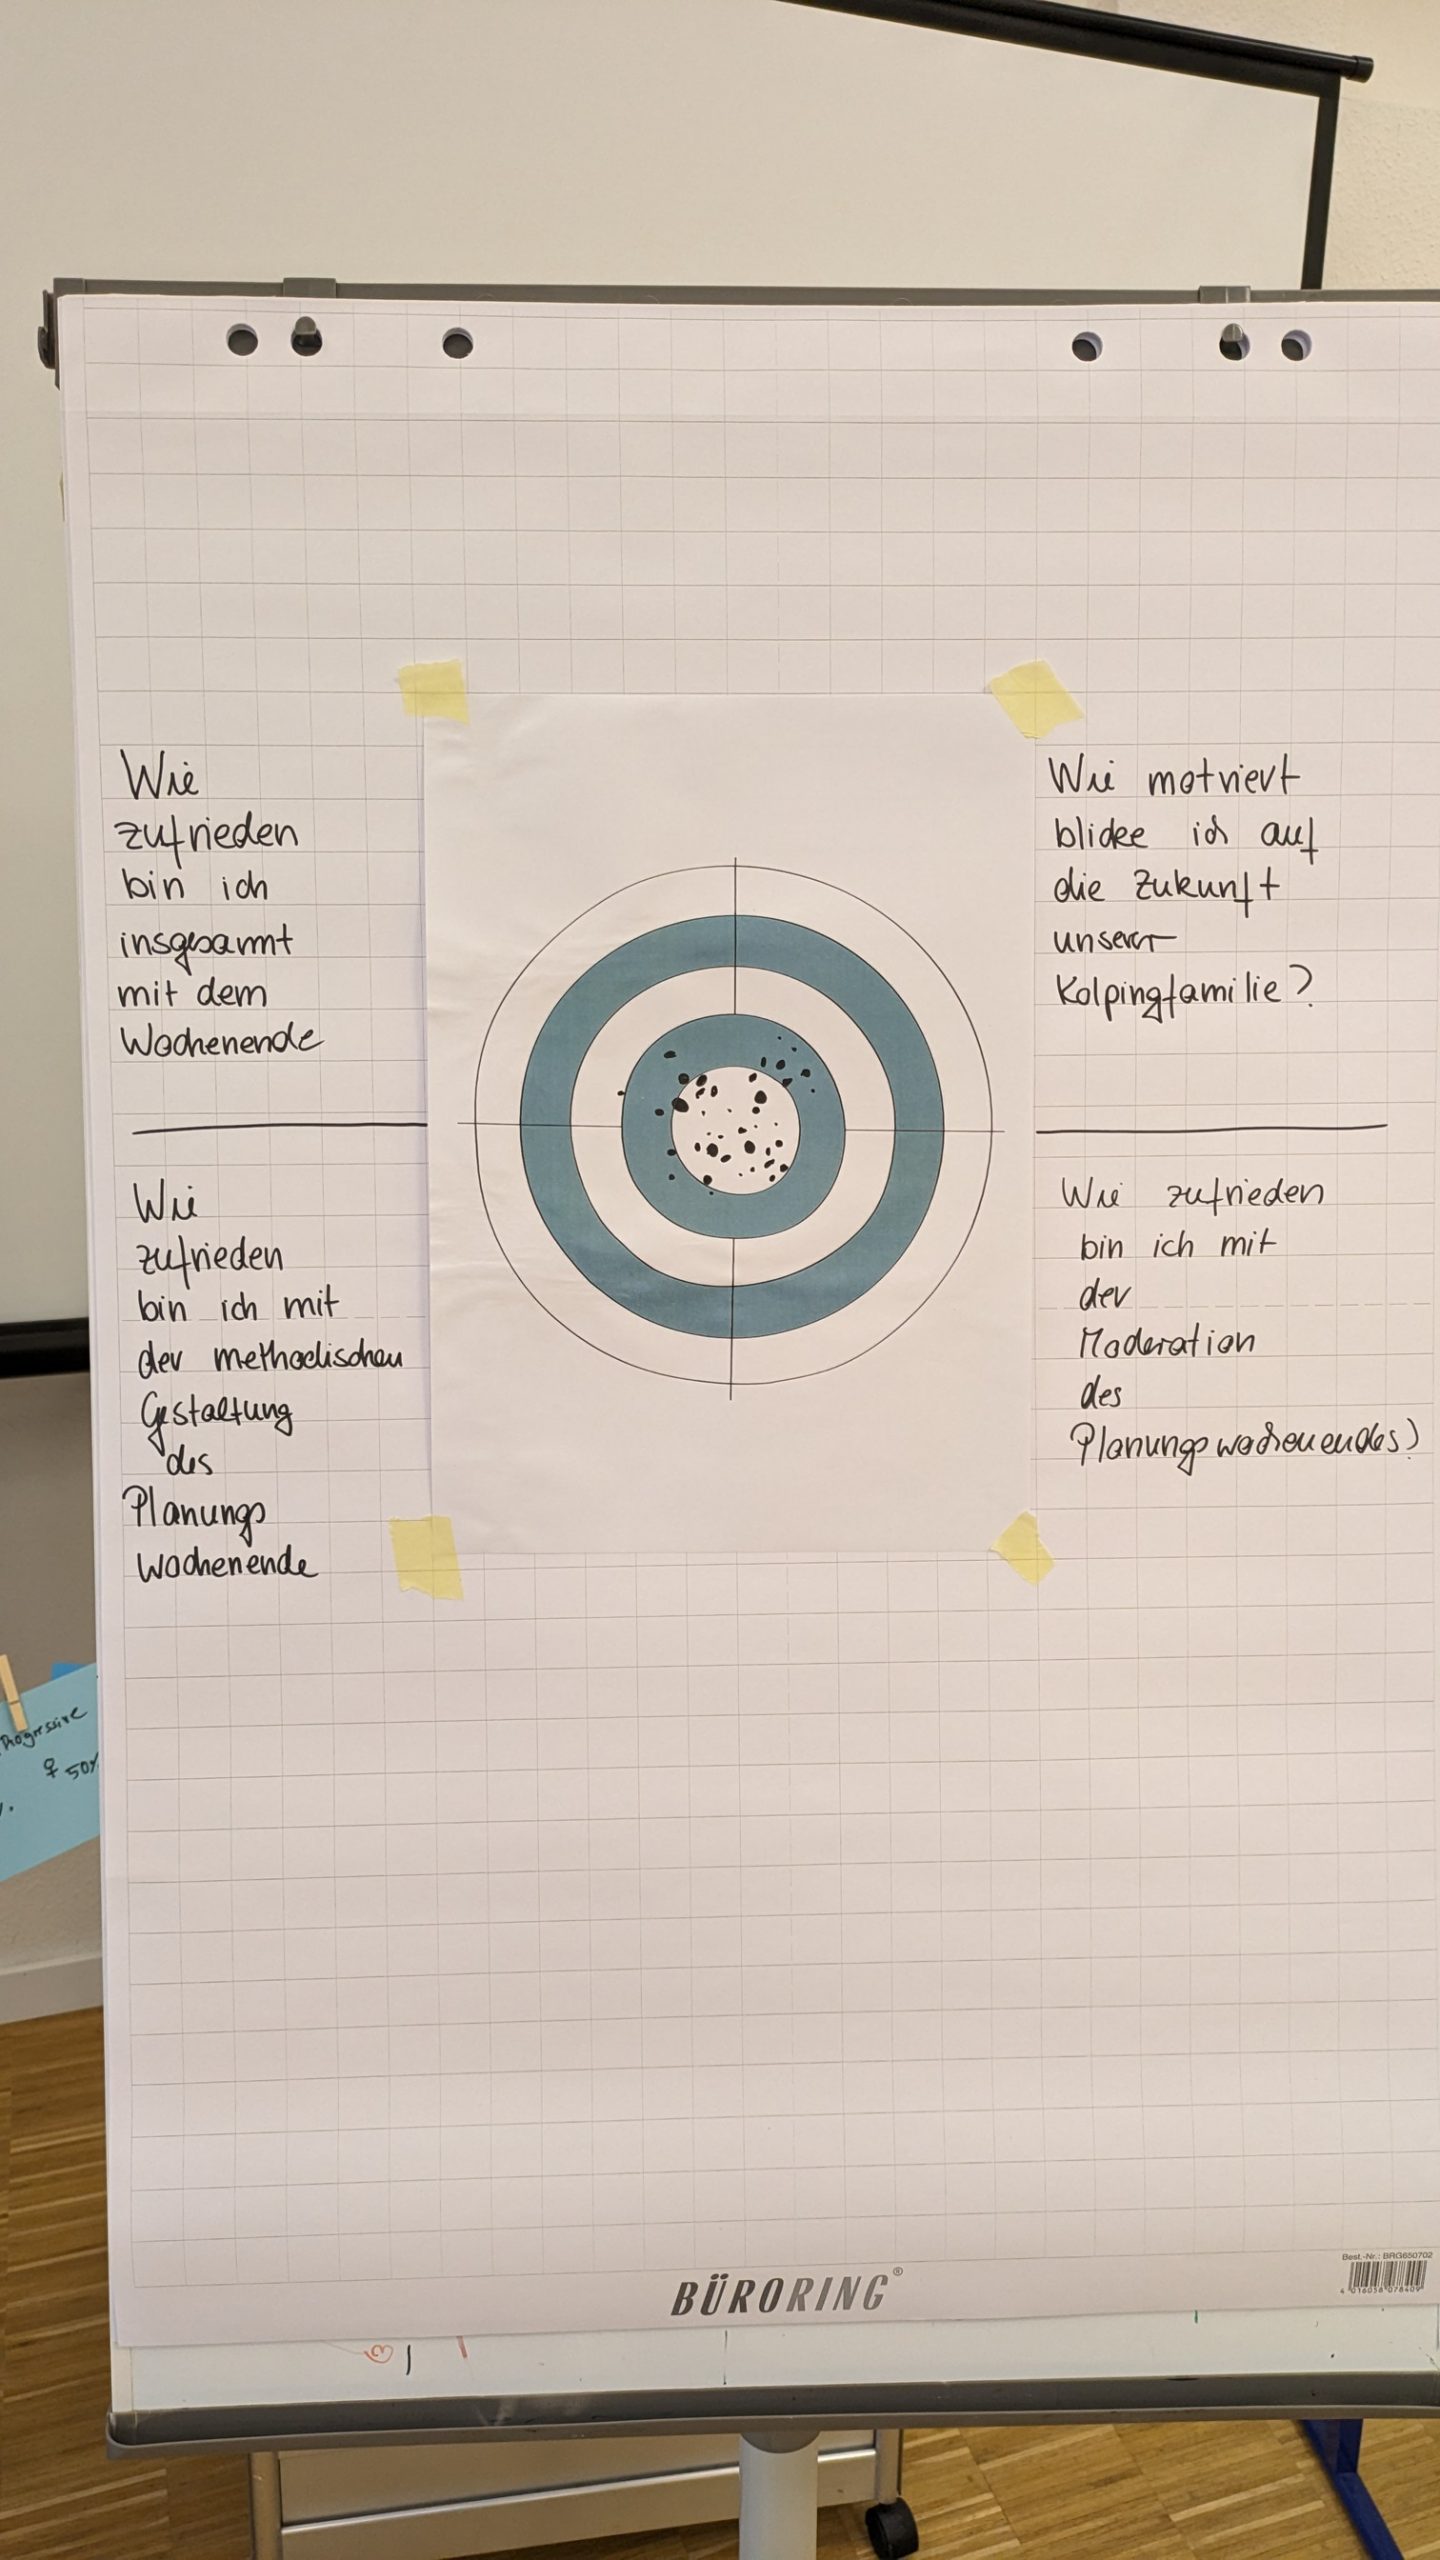 Wie
zufrieden
bin ich
insgesamt
mit dem
Wochenende
Wie motiviert
blicke ich auf
die Zukunft
unserer
Kolpingfamilie?
Wie
zufrieden
bin ich mit
der methodischen
Gestaltung
des
Planungs
Wochenende
Wie zufrieden
bin ich mit
der
Moderation
des
Planungswochenendes?
Progressive
♀ 50%
BÜRORING®
Best.-Nr.: BRG650702
4 016058 078409